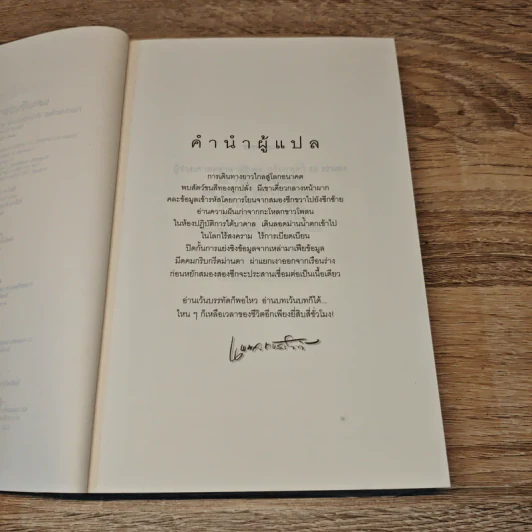 คำนำผู้แปล
การเดินทางยาวไกลสู่โลกอนาคต
พบสัตว์ขนสีทองสุกปลั่ง มีเขาเดี่ยวกลางหน้าผาก
คละข้อมูลเข้ารหัสโดยการโยนจากสมองซีกขวาไปยังซีกซ้าย
อ่านความฝันเก่าจากกะโหลกขาวโพลน
ในห้องปฏิบัติการใต้บาดาล เดินลอดม่านน้ำตกเข้าไป
ในโลกไร้สงคราม ไร้การเบียดเบียน
ปิดกั้นการแย่งชิงข้อมูลจากเหล่ามาเฟียข้อมูล
มีดคมกริบกรีดผ่านตา ผ่าแยกเงาออกจากเรือนร่าง
ก่อนหยักสมองสองซีกจะประสานเชื่อมต่อเป็นเนื้อเดียว
อ่านเว้นบรรทัดก็พอไหว อ่านบทเว้นบทก็ได้...
ไหน ๆ ก็เหลือเวลาของชีวิตอีกเพียงยี่สิบสี่ชั่วโมง!